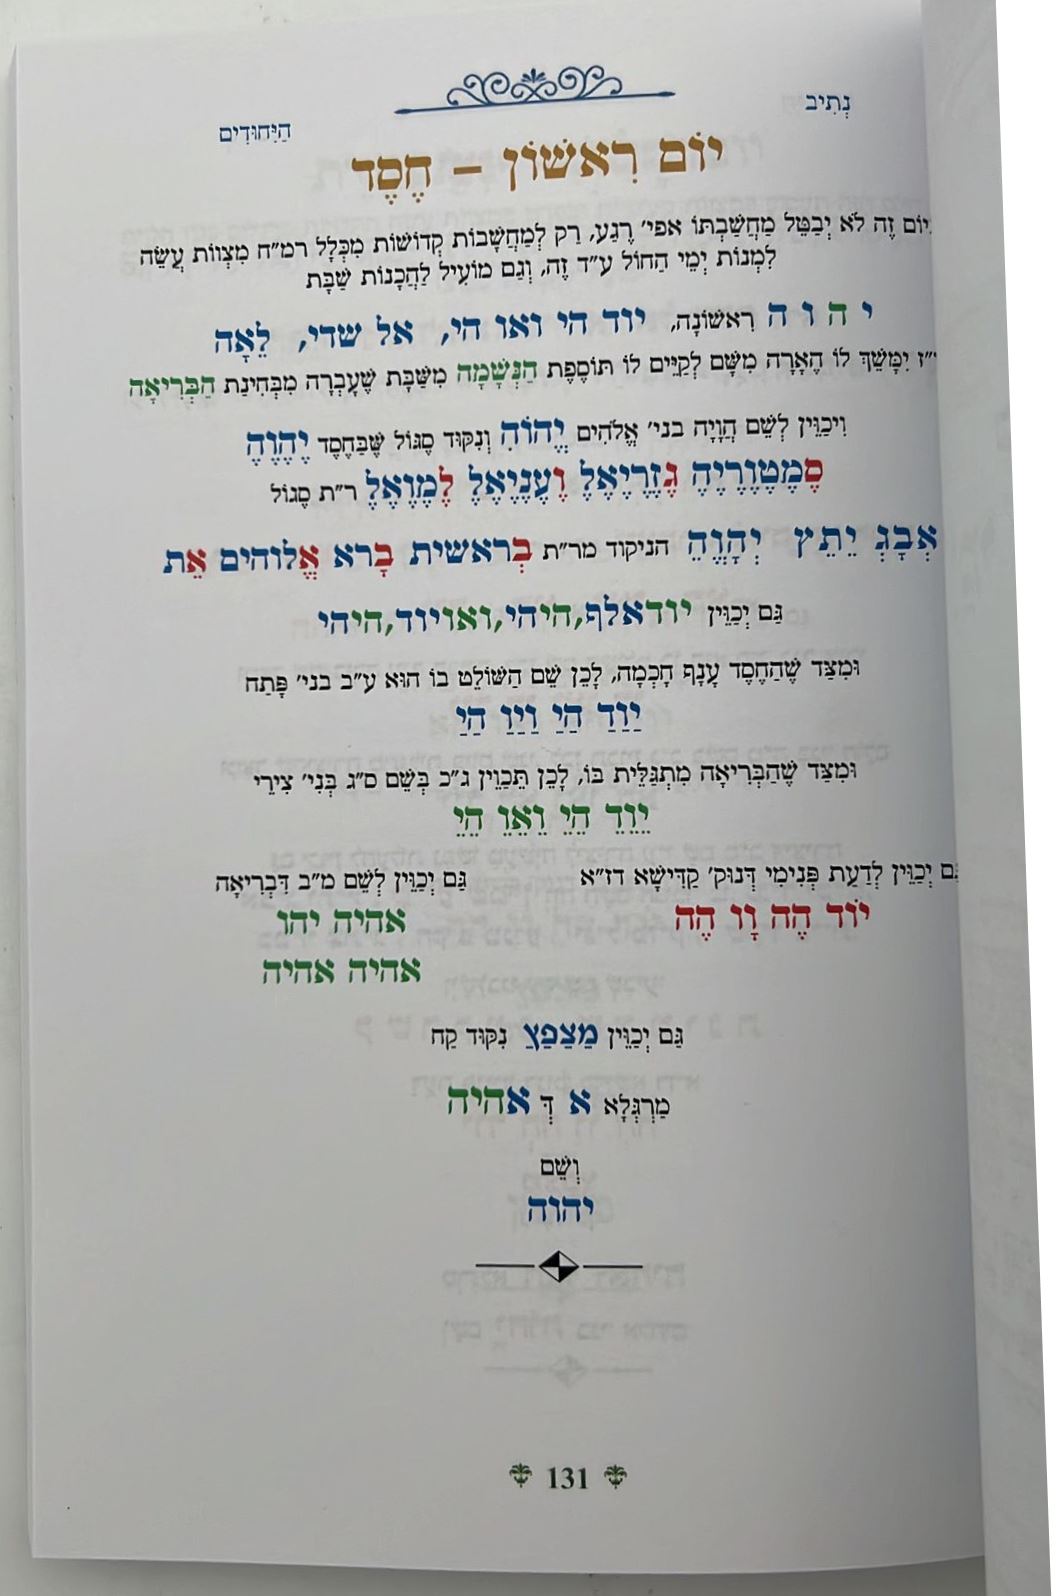 נְתִיב
הַיִּחוּדִים
יוֹם רִאשׁוֹן – חֶסֶד
יוֹם זֶה לֹא יְבַטֵּל מַחֲשַׁבְתּוֹ אפי' רֶגַע, רַק לְמַחֲשָׁבוֹת קְדוֹשׁוֹת מִכְּלָל רמ״ח מִצְווֹת עֲשֵׂה
לִמְנוֹת יְמֵי הַחוֹל ע״ד זֶה, וְגַם מוֹעִיל לַהֲכָנוֹת שַׁבָּת
י ה ו ה רִאשׁוֹנָה, יוד הי ואו הי, אל שדי, לֵאָה
יִמָּשֵׁךְ לוֹ הֶאָרָה מִשָּׁם לְקַיֵּים לוֹ תּוֹסֶפֶת הַנְּשָׁמָה מִשַּׁבָּת שֶׁעָבְרָה מִבְּחִינַת הַבְּרִיאָה
וִיכַוֵּין לְשֵׁם הֲוָיָה בני' אֱלֹהִים יֱהֹוִה וְנִקּוּד סֶגּוֹל שֶׁבַּחֶסֶד יֶהֶוֶהֶ
סֶמֶטֶוֶרֶיֶהֶ גֶזֶרֶיֶאֶלֶ וֶעֶנֶיֶאֶלֶ לֶמֶוֶאֶלֶ ר״ת סֶגוֹל
אְבָגְ יֵתֵץ יְהָוֱהֵ הניקוד מר״ת בְּראשית בָּרא אֱלוהים אֵת
גַּם יְכַוֵּין יודאלף,היהי,ואויוד,היהי
וּמִצַּד שֶׁהַחֶסֶד עָנָף חָכְמָה, לָכֵן שֵׁם הַשּׁוֹלֵט בוֹ הוּא ע״ב בני' פָּתַח
יַוַדַ הַיַ וַיַוַ הַיַ
וּמִצַּד שֶׁהַבְּרִיאָה מִתְגַּלֵּית בּוֹ, לָכֵן תְּכַוֵּין ג״כ בְּשֵׁם ס״ג בְּנִי' צִירֵי
יֵוֵדֵ הֵיֵ וֵאֵוֵ הֵיֵ
גַּם יְכַוֵּין לְדַעַת פְּנִימִי דְּנוּק' קַדִּישָׁא דז״א
יוֹד הֶה וָו הֶה
גַּם יְכַוֵּין לְשֵׁם מ״ב דִּבְרִיאָה
אהיה יהו
אהיה אהיה
גַּם יְכַוֵּין מַצַפַּץַ נִקּוּד קַח
מַרְגְּלָא א דְּ אהיה
וְשֵׁם
יהוה
131